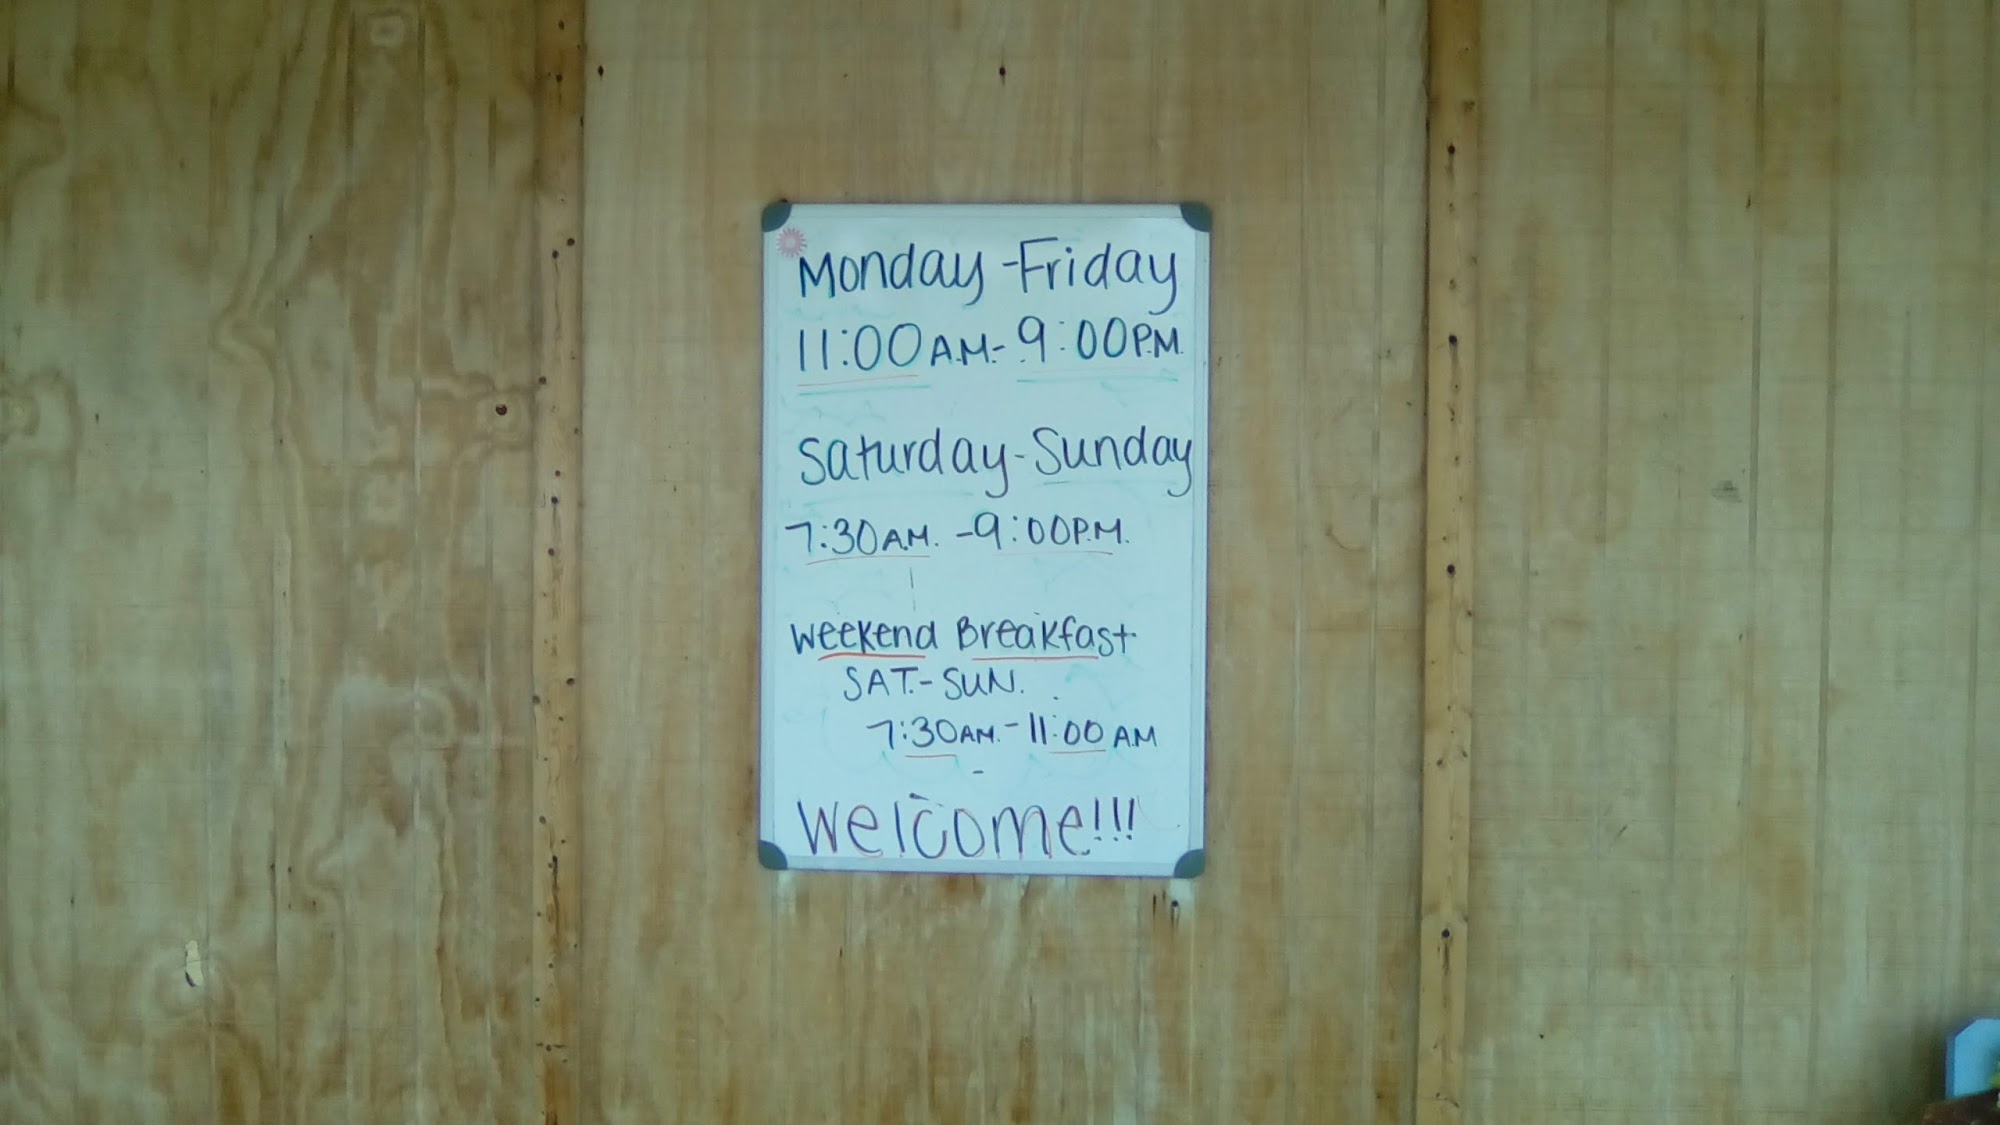 Monday-Friday
11:00 A.M.- 9:00 P.M.
Saturday-Sunday
7:30 A.M. -9:00 P.M.
Weekend Breakfast
SAT.-SUN.
7:30 AM.-11:00 AM
Welcome!!!